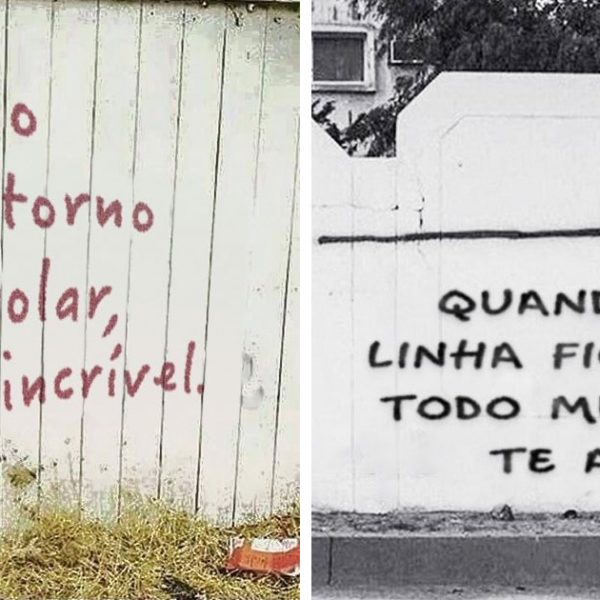 o
torno
olar,
incrível.
QUAND
LINHA FI
TODO M
TE A